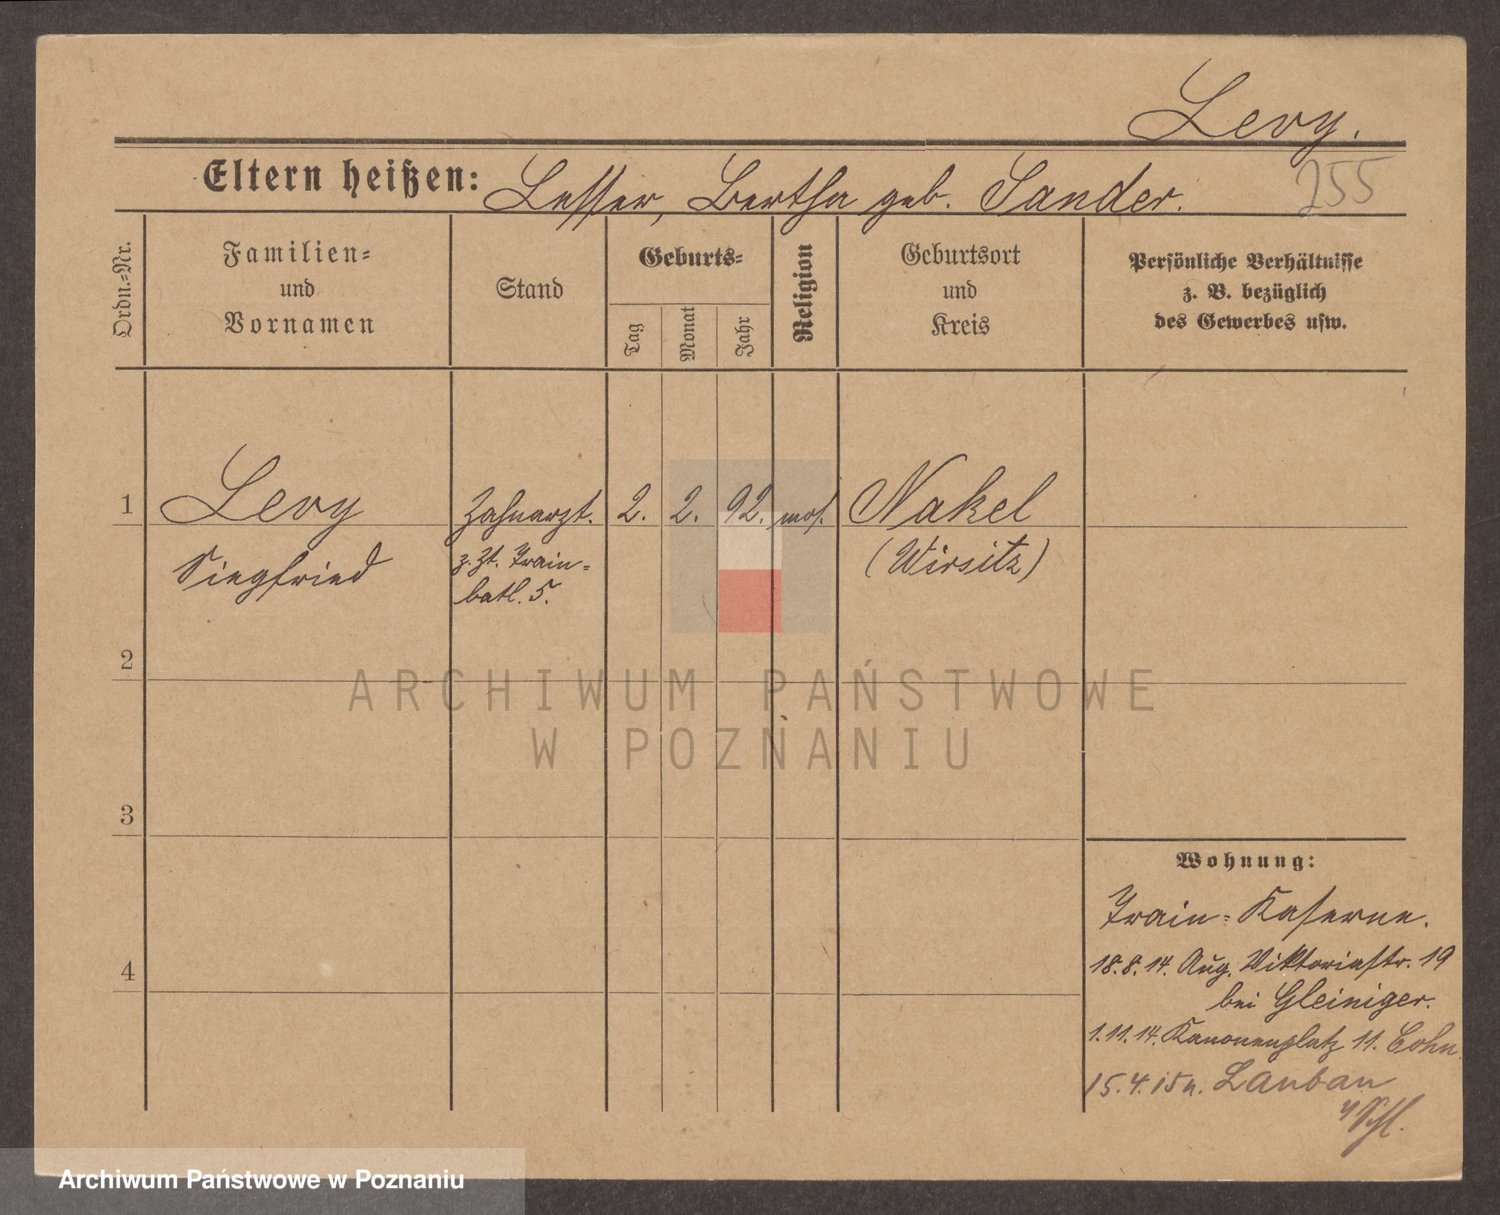 Levy.
Eltern heißen: Lesser, Bertha geb. Sander.
255
Ordn.-Nr.
Familien-
und
Vornamen
Stand
Geburts-
Tag
Monat
Jahr
Religion
Geburtsort
und
Kreis
Persönliche Verhältnisse
z. B. bezüglich
des Gewerbes usw.
1 Levy Zahnarzt. 2. 2. 92. mos. Nakel
Siegfried z. Zt. Train- (Wirsitz)
batl. 5.
2
ARCHIWUM PAŃSTWOWE
W POZNANIU
3
Wohnung:
Train-Kaserne.
18.8.14. Aug. Viktoriastr. 19
bei Gleiniger.
1.11.14. Kanonenplatz 11. Cohn.
15.4.15 n. Lauban
4
Archiwum Państwowe w Poznaniu